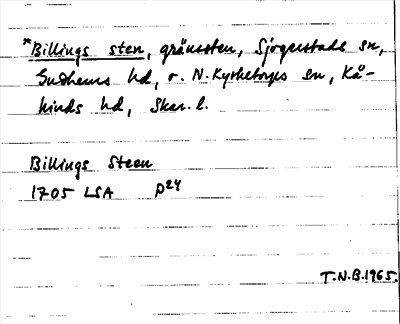 *Billings sten, gränssten, Sjogerstads sn,
Gudhems hd, o. N. Kyrketorps sn, Kå-
kinds hd, Skar. l.
Billings Steen
1705 LSA P24
T.N.B.1965.